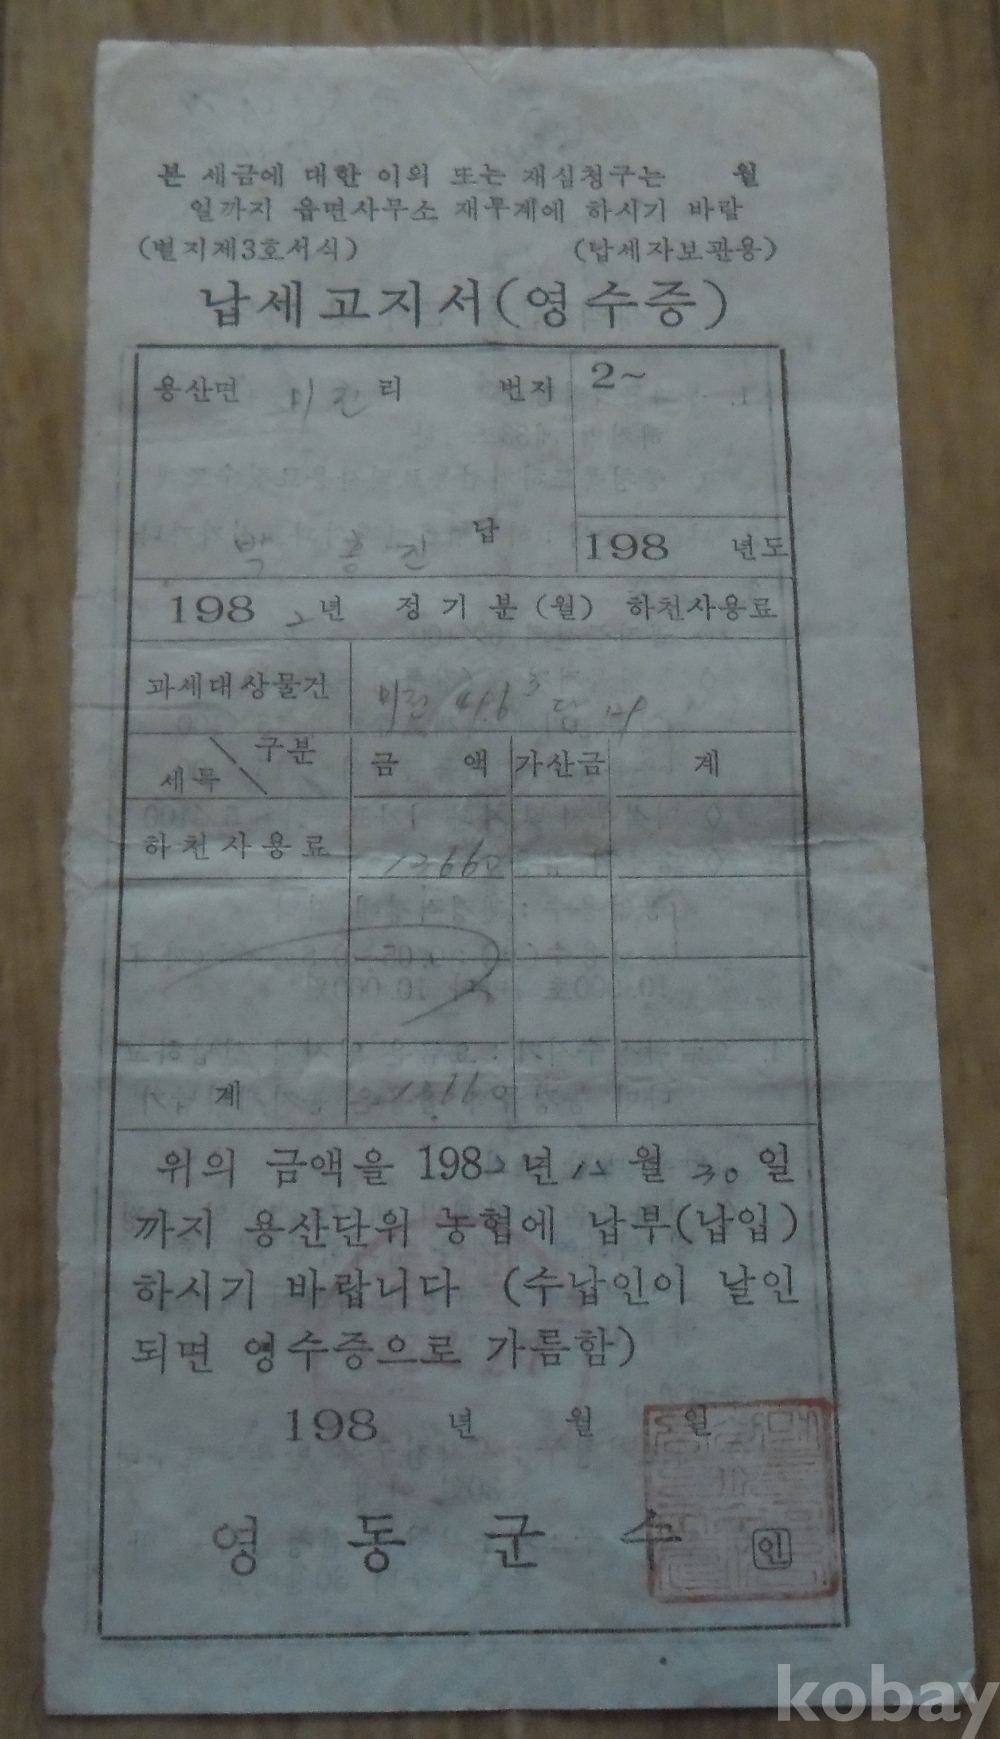 본 세금에 대한 이의 또는 재심청구는 월
일까지 읍면사무소 재무계에 하시기 바람
(별지제3호서식) (납세자보관용)
납세고지서(영수증)
용산면 미전리 번지 2~
박 흥 진 답
198 년도
1982년 정기분(월) 하천사용료
과세대상물건 미전 416 3 답
구분 세목 금액 가산금 계
하천사용료 12660
계 12660
위의 금액을 1982년 12월 30일
까지 용산단위 농협에 납부(납입)
하시기 바랍니다 (수납인이 날인
되면 영수증으로 가름함)
198 년 월 일
영동군수 인
kobay